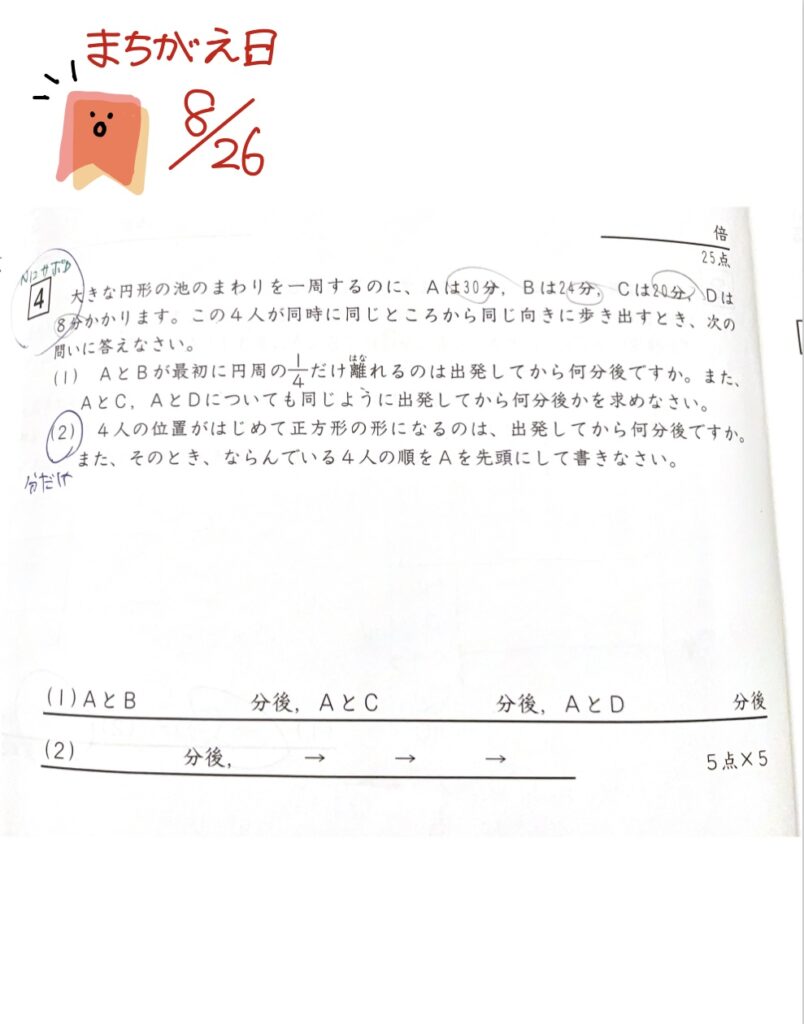 まちがえ日
8/26
倍
25点
N12サポD
4 大きな円形の池のまわりを一周するのに、Aは30分，Bは24分，Cは20分、Dは
8分かかります。この4人が同時に同じところから同じ向きに歩き出すとき、次の
問いに答えなさい。
(1) AとBが最初に円周の1/4だけ離れるのは出発してから何分後ですか。また、
はな
AとC，AとDについても同じように出発してから何分後かを求めなさい。
(2) 4人の位置がはじめて正方形の形になるのは、出発してから何分後ですか。
また、そのとき、ならんでいる4人の順をAを先頭にして書きなさい。
分だけ
(1)AとB 分後，AとC 分後，AとD 分後
(2) 分後， → → →
5点×5